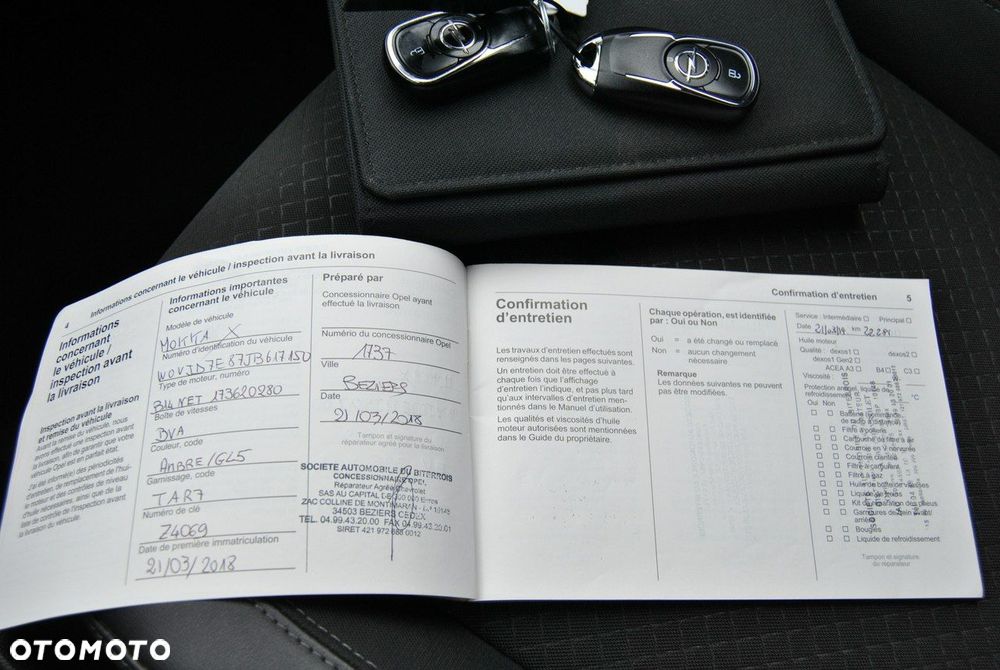 4
Informations concernant le véhicule / inspection avant la livraison
Informations
concernant
le véhicule /
inspection avant
la livraison
Inspection avant la livraison
et remise du véhicule
Avant la remise du véhicule, nous
avons effectué une inspection avant
la livraison, afin de garantir que votre
véhicule Opel est en parfait état.
J'ai été informé(e) des périodicités
d'entretien, de remplacement de l'hui-
le moteur et des contrôles de niveau
d'huile nécessaires, ainsi que de la
liste de contrôle de l'inspection avant
la livraison du véhicule.
Informations importantes
concernant le véhicule
Modèle de véhicule
MOKKA X
Numéro d'identification du véhicule
W0VJD7E87JB617150
Type de moteur, numéro
B14NET 173620280
Boîte de vitesses
BVA
Couleur, code
AMBRE/GL5
Garnissage, code
TAR7
Numéro de clé
Z4069
Date de première immatriculation
21/03/2018
Préparé par
Concessionnaire Opel ayant
effectué la livraison
Numéro du concessionnaire Opel
1737
Ville
BEZIERS
Date
21/03/2018
Tampon et signature du
réparateur agréé pour la livraison
SOCIETE AUTOMOBILE DU BITERROIS
CONCESSIONNAIRE OPEL
Réparateur Agréé Chevrolet
SAS AU CAPITAL
ZAC COLLINE DE MONTIMARAN
34503 BEZIERS CEDEX
TEL. 04.99.43.20.00 FAX 04.99.43.20.01
SIRET 421 972 688 0012
Confirmation d'entretien 5
Confirmation
d'entretien
Les travaux d'entretien effectués sont
renseignés dans les pages suivantes.
Un entretien doit être effectué à
chaque fois que l'affichage
d'entretien l'indique, et pas plus tard
qu'aux intervalles d'entretien men-
tionnés dans le Manuel d'utilisation.
Les qualités et viscosités d'huile
moteur autorisées sont mentionnées
dans le Guide du propriétaire.
Chaque opération, est identifiée
par : Oui ou Non
Oui = a été changé ou remplacé
Non = aucun changement
nécessaire
Remarque
Les données suivantes ne peuvent
pas être modifiées.
Service : Intermédiaire Principal
Date km
Huile moteur
Qualité : dexos1 dexos2
dexos1 Gen2
ACEA A3 B4 C3
Viscosité : °C
Protection antigel, liquide de
refroidissement
Oui Non
Batterie (commande
de radio à distance)
Filtre à pollens
Cartouche de filtre à air
Courroie en V nervurée
Courroie crantée
Filtre à carburant
Filtre à gaz
Huile de boîte de vitesses
Liquide de freins
Kit de réparation des pneus
Garnitures de frein avant/
arrière
Bougies
Liquide de refroidissement
Tampon et signature
du réparateur
OTOMOTO